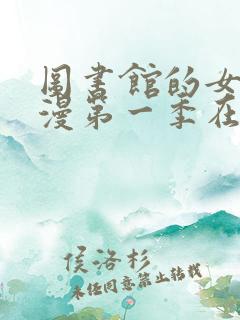 圖書館的女
漫第一季在
侯洛杉
未经同意禁止转载